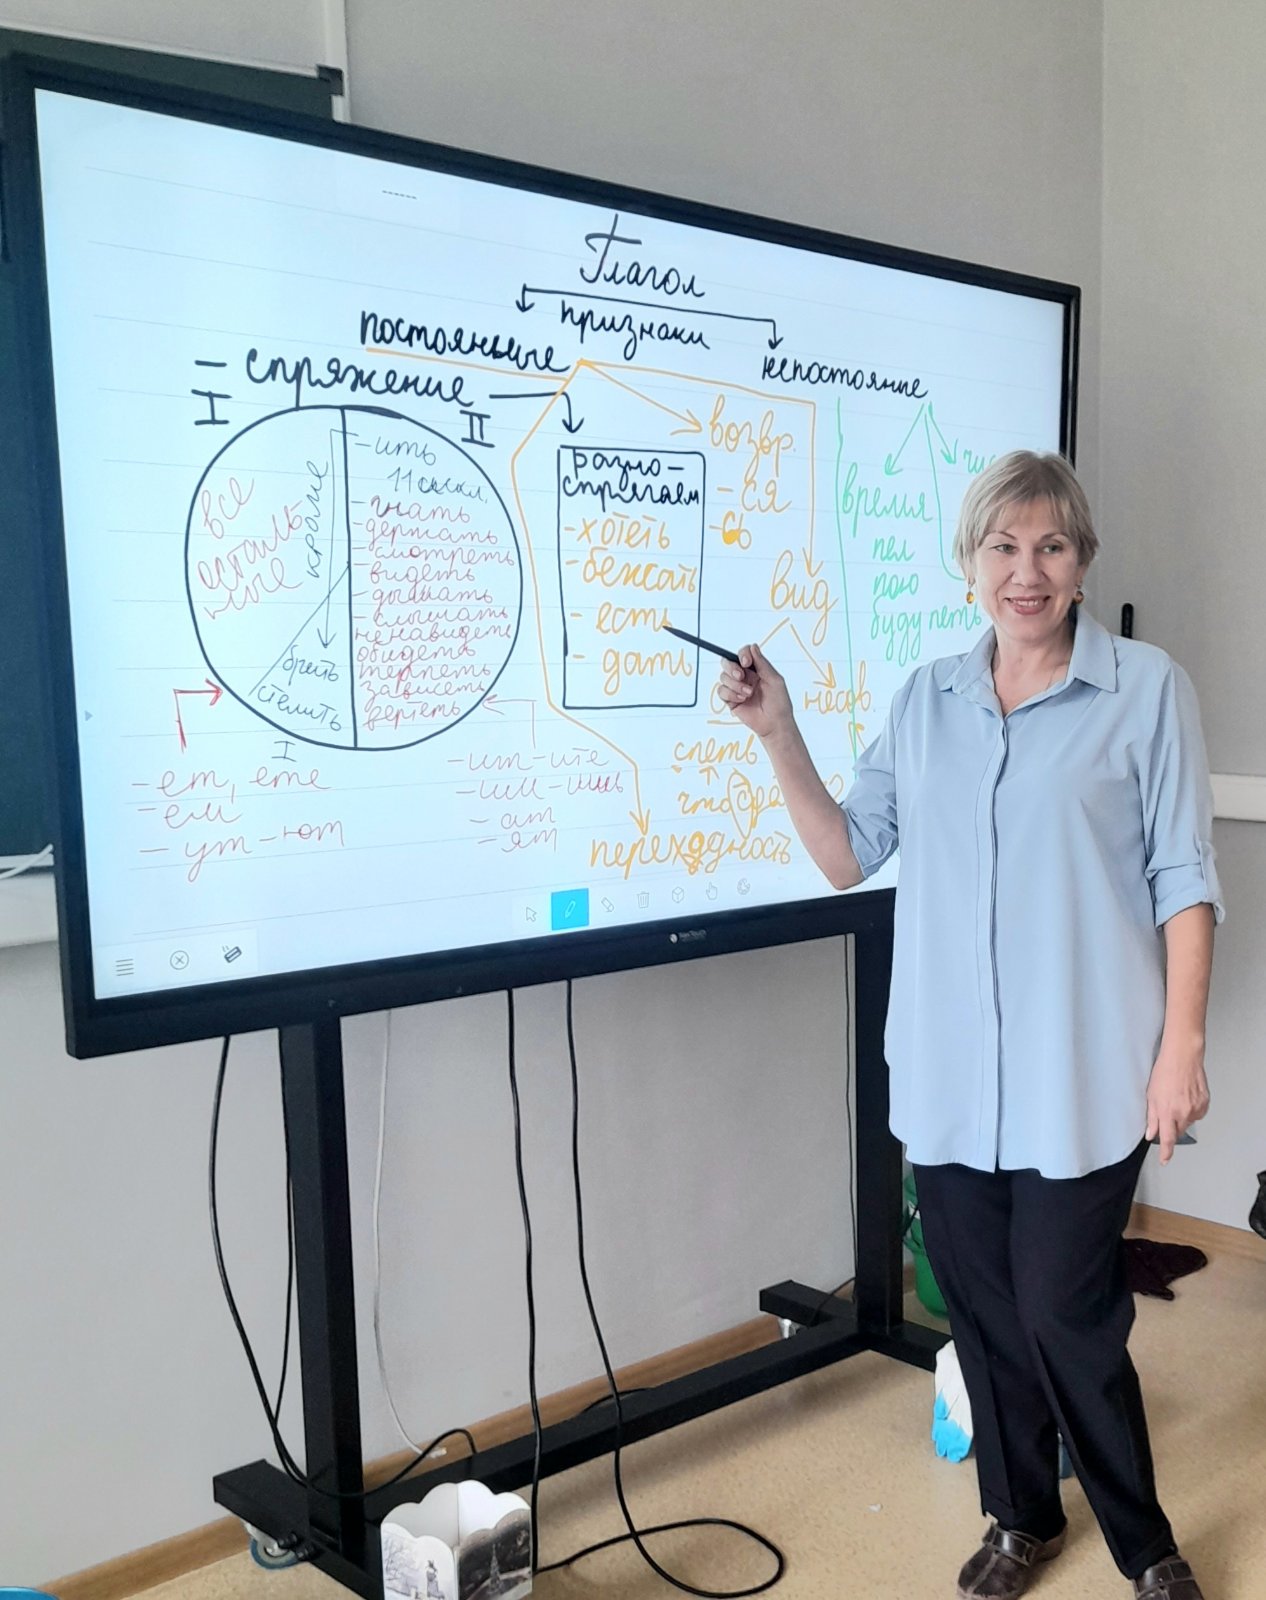 Глагол
признаки
постоянные
непостояние
- спряжение
I
II
все
осталь
ные
кроме
брить
стелить
I
-ить
11 сыскл.
-гнать
-держать
-смотреть
-видеть
-дышать
-слышать
ненавидеть
обидеть
терпеть
зависеть
вертеть
-ет, ете
-ем
-ут-ют
-ит-ите
-им-ишь
-ат
-ят
разно-
спрягаем
-хотеть
-бежать
-есть
-дать
возвр.
-ся
-сь
вид
несов.
спеть
что
переходность
время
пел
пою
буду петь